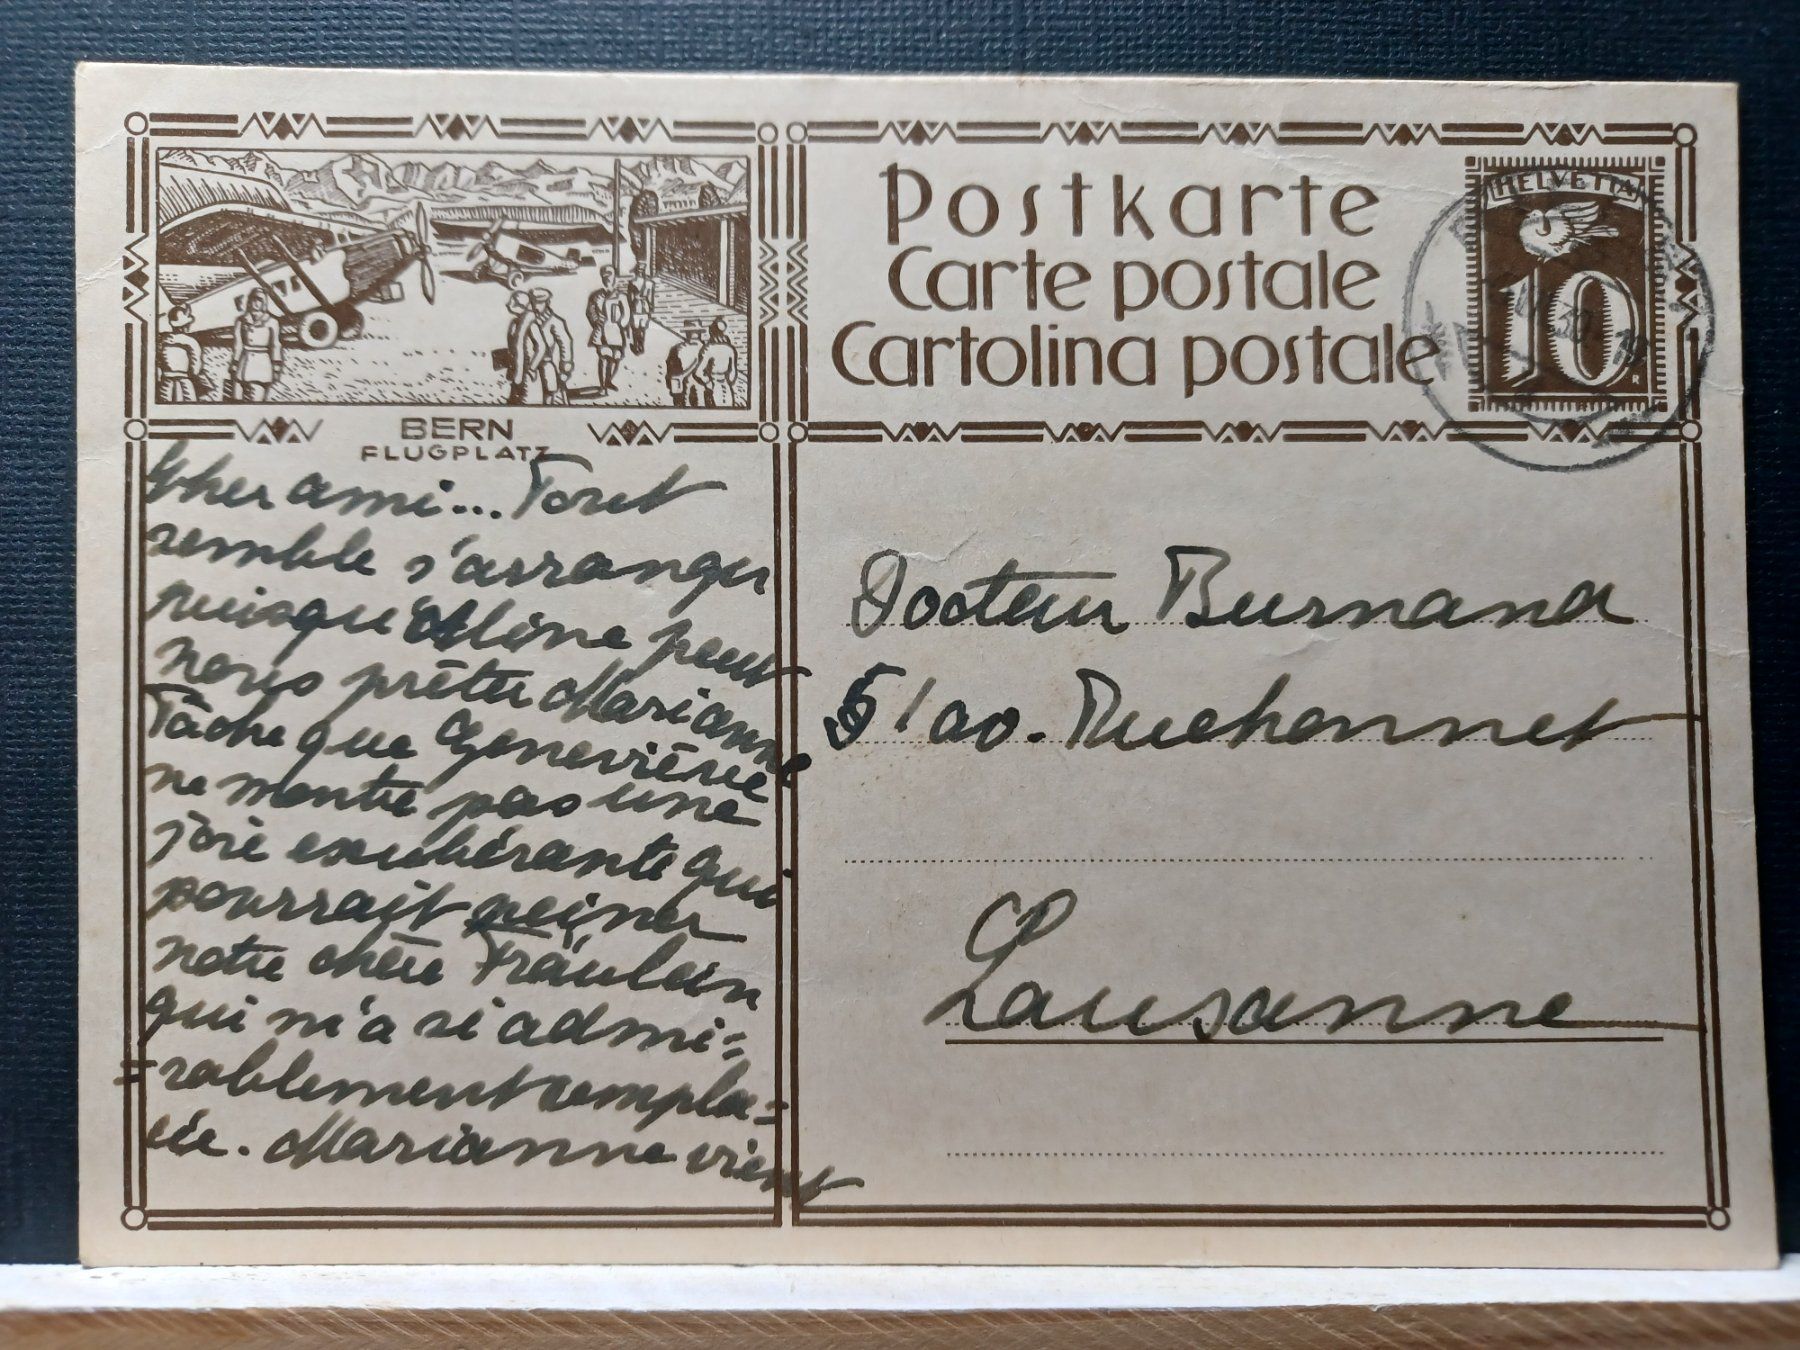 BERN
FLUGPLATZ
Postkarte
Carte postale
Cartolina postale
HELVETIA
10
Cher ami... Tout
semble s'arranger
puisqu'Aline peut
nous prêter Marianne
Tâche que Geneviève
ne montre pas une
joie exubérante qui
pourrait peiner
notre chère Fräulein
qui m'a si admi=
=rablement rempla=
cée. Marianne vient
Docteur Burnand
51 av. Ruchonnet
Lausanne